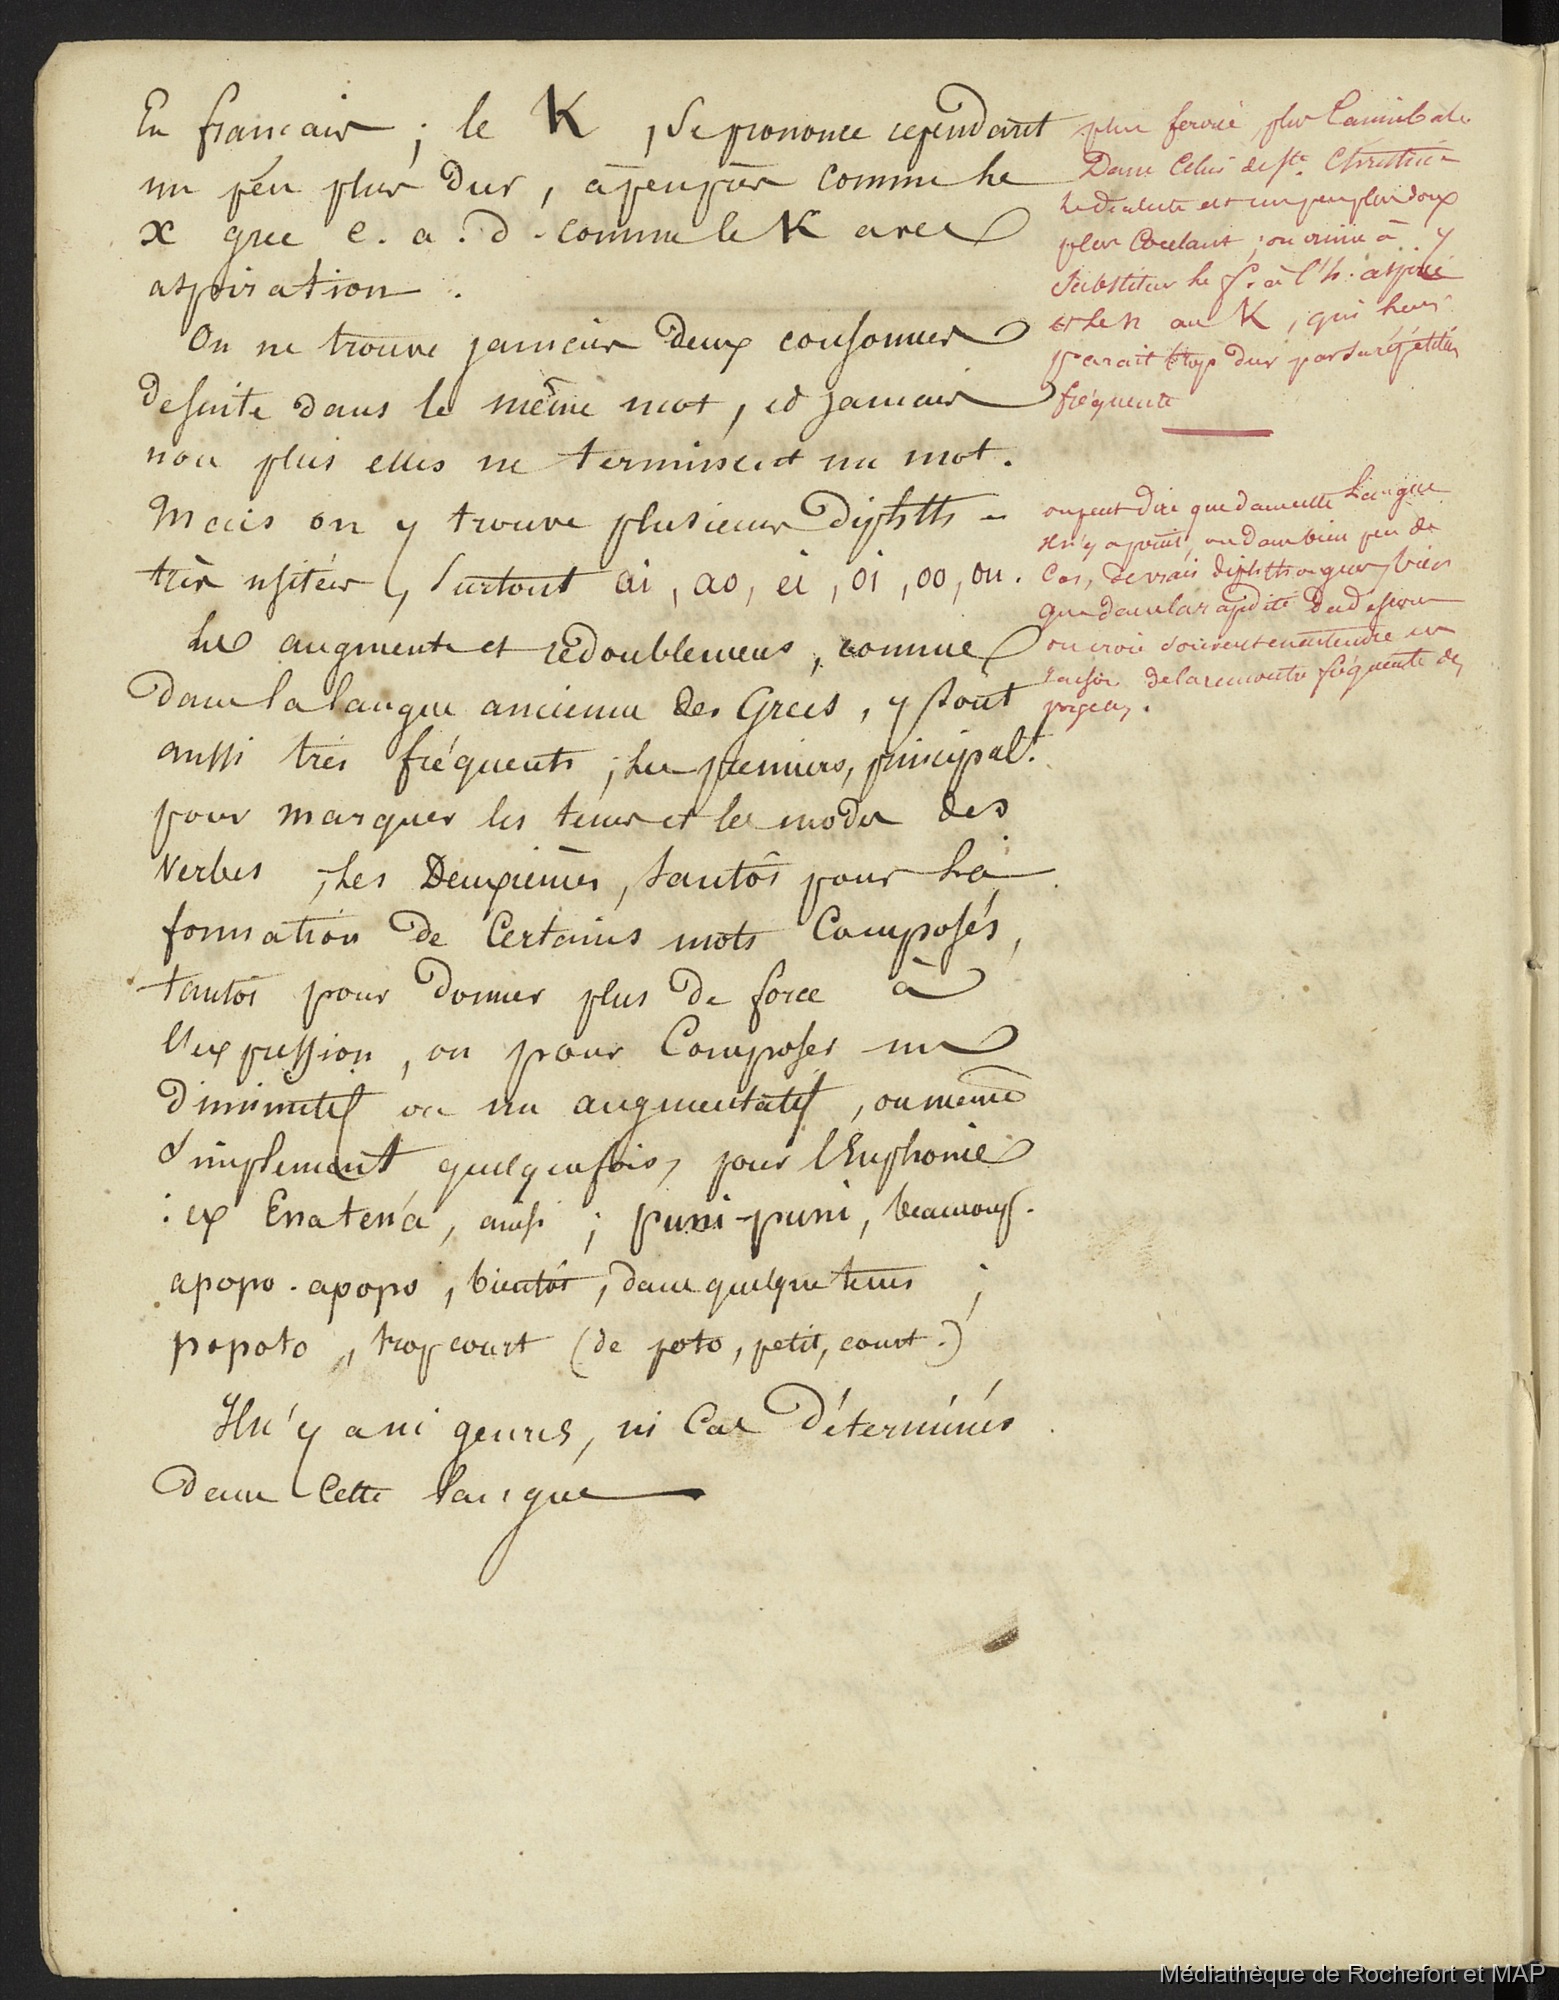 En francais ; le K, se prononce cependant
un peu plus dur, àpeuprès comme le
X grec c. a. d. comme le K avec
aspiration.
On ne trouve jamais deux consonnes
desuite dans le même mot, et jamais
non plus elles ne terminent un mot.
Mais on y trouve plusieurs Diphth
très usitées, surtout ai, ao, ei, oi, oo, ou.
Les augments et redoublemens, comme
dans la langue ancienne des Grecs, y sont
aussi très fréquents ; les premiers, principalt.
pour marquer les tems et les modes des
verbes ; les Deuxièmes, tantôt pour la
formation de Certains mots Composés,
tantôt pour donner plus de force à
l'expression, ou pour Composer un
diminutif ou un augmentatif, ou même
simplement quelquefois, pour l'Euphonie
: ex Enatena, ainsi ; puni-puni, beaucoup.
apopo-apopo, bientôt, dans quelque tems ;
popoto, trop court (de poto, petit, court.)
Il n'y a ni genres, ni Cas Déterminés
dans Cette langue
plus fermé, plus Cannibale.
Dans Celui de Ste. Christine
le dialecte est un peu plus doux
plus Coulant ; on aime à y
Substituer le f. à l'h. aspiré
et le n au K, qui leur
parait trop dur par sa répétition
fréquente
on peut dire que dans cette langue
il n'y a point, ou dans bien peu de
Cas, de vrais diphthongues, bien
que dans la rapidité du discours
on croie souvent en entendre en
raison de la rencontre fréquente des
Médiathèque de Rochefort et MAP